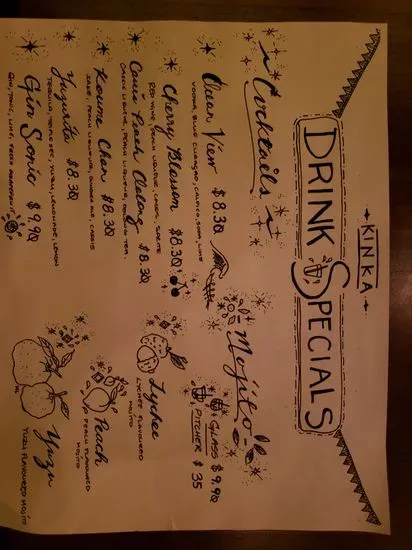 KINKA
DRINK SPECIALS
Cocktails
Clear View $8.30
VODKA, BLUE CURACAO, CALPICO, SODA, LIME
Cherry Blossom $8.30
RED WINE, PEACH LIQUEUR, CASSIS, SPRITE
Cassis Peach Oolong $8.30
CASSIS LIQUEUR, PEACH LIQUEUR, OOLONG TEA
Koume Chan $8.30
SAKE, PEACH LIQUEUR, GINGER ALE, CASSIS
Yuzurita $8.30
TEQUILA, TRIPLE SEC, YUZU, LEMONADE, LEMON
Gin Sonic $9.90
GIN, TONIC, LIME, FRESH GRAPEFRUIT
Mojito
GLASS $9.90
PITCHER $35
Lychee
LYCHEE FLAVOURED
MOJITO
Peach
PEACH FLAVOURED
MOJITO
Yuzu
YUZU FLAVOURED MOJITO